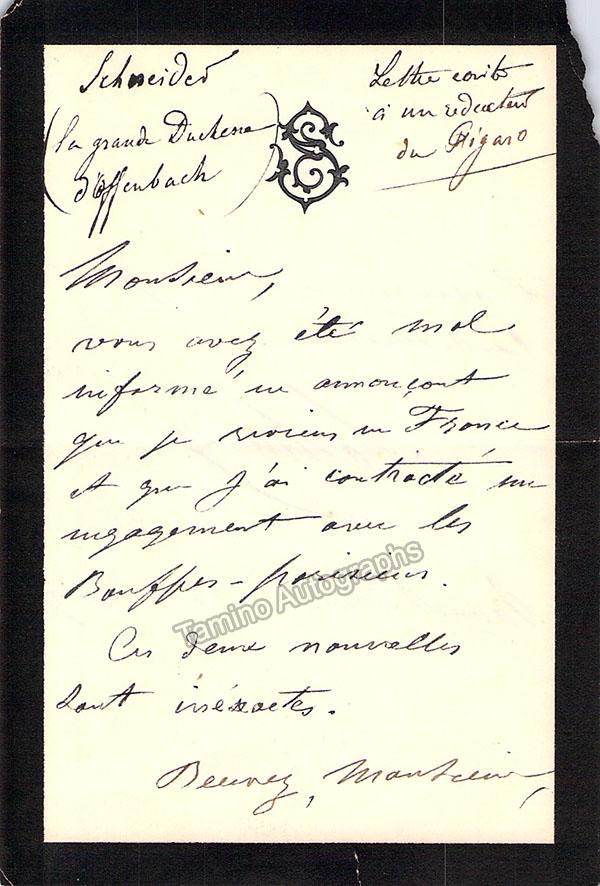 Schneider
(la grande Duchesse
d'Offenbach)
Lettre écrite
à un rédacteur
du Figaro
S
Monsieur,
vous avez été mal
informé en annonçant
que je reviens en France
et que j'ai contracté un
engagement avec les
Bouffes-parisiens.
Ces deux nouvelles
sont inéxactes.
Recevez, Monsieur,
Tamino Autographs